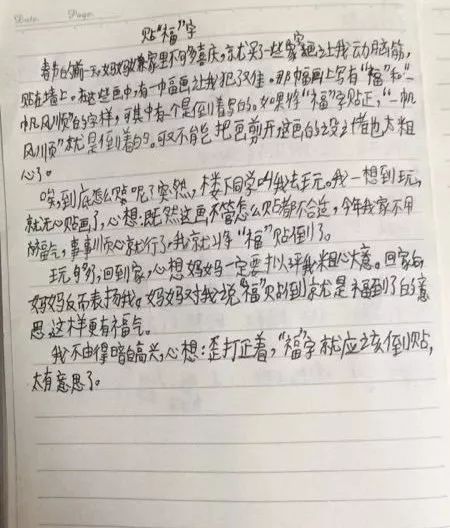 Date. Page.
贴“福”字
春节的前一天，妈妈嫌家里不够喜庆，就买了一些家画让我动脑筋，
贴在墙上。在这些画中，有一幅画让我犯了难。那幅画上写有“福”和“一
帆风顺”的字样，可其中有一个是倒着写的。如果将“福”字贴正，“一帆
风顺”就是倒着的。可又不能把画剪开，这画的设计者也太粗
心了。
唉，到底怎么贴呢？突然，楼下同学叫我去玩。我一想到玩，
就无心贴画了，心想：既然这画不管怎么贴都不合适，今年我家不用
福气，事事顺心就行了，我就将“福”贴倒了。
玩够了，回到家，心想妈妈一定要批评我粗心大意。回家后
妈妈反而表扬我。妈妈对我说“福”贴倒就是福到了的意
思，这样更有福气。
我不由得暗自高兴，心想：歪打正着，“福”字就应该倒贴，
太有意思了。